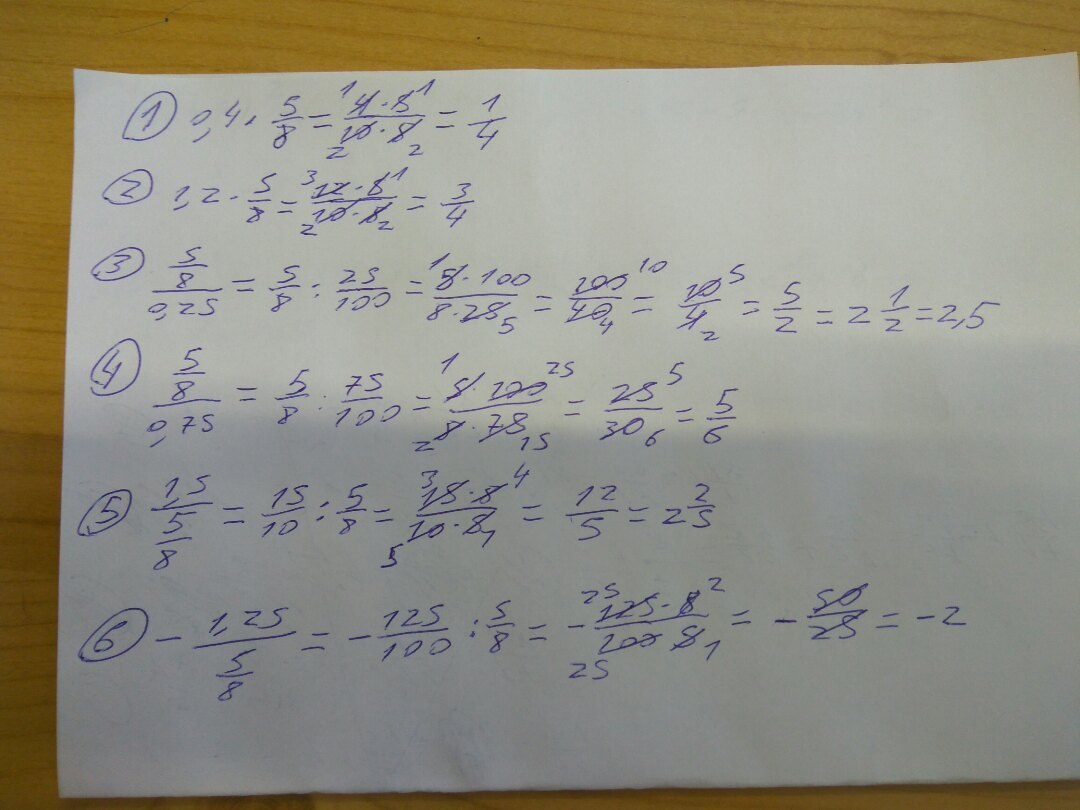 ① 0,4 · 5/8 = (4·5)/(10·8) = 1/4
② 1,2 · 5/8 = (12·5)/(10·8) = 3/4
③ (5/8)/0,25 = 5/8 : 25/100 = (5·100)/(8·25) = 100/40 = 10/4 = 5/2 = 2 1/2 = 2,5
④ (5/8)/0,75 = 5/8 : 75/100 = (5·100)/(8·75) = 25/30 = 5/6
⑤ 1,5/(5/8) = 15/10 : 5/8 = (15·8)/(10·5) = 12/5 = 2 2/5
⑥ - 1,25/(5/8) = - 125/100 : 5/8 = - (125·8)/(100 5) = - 50/25 = -2